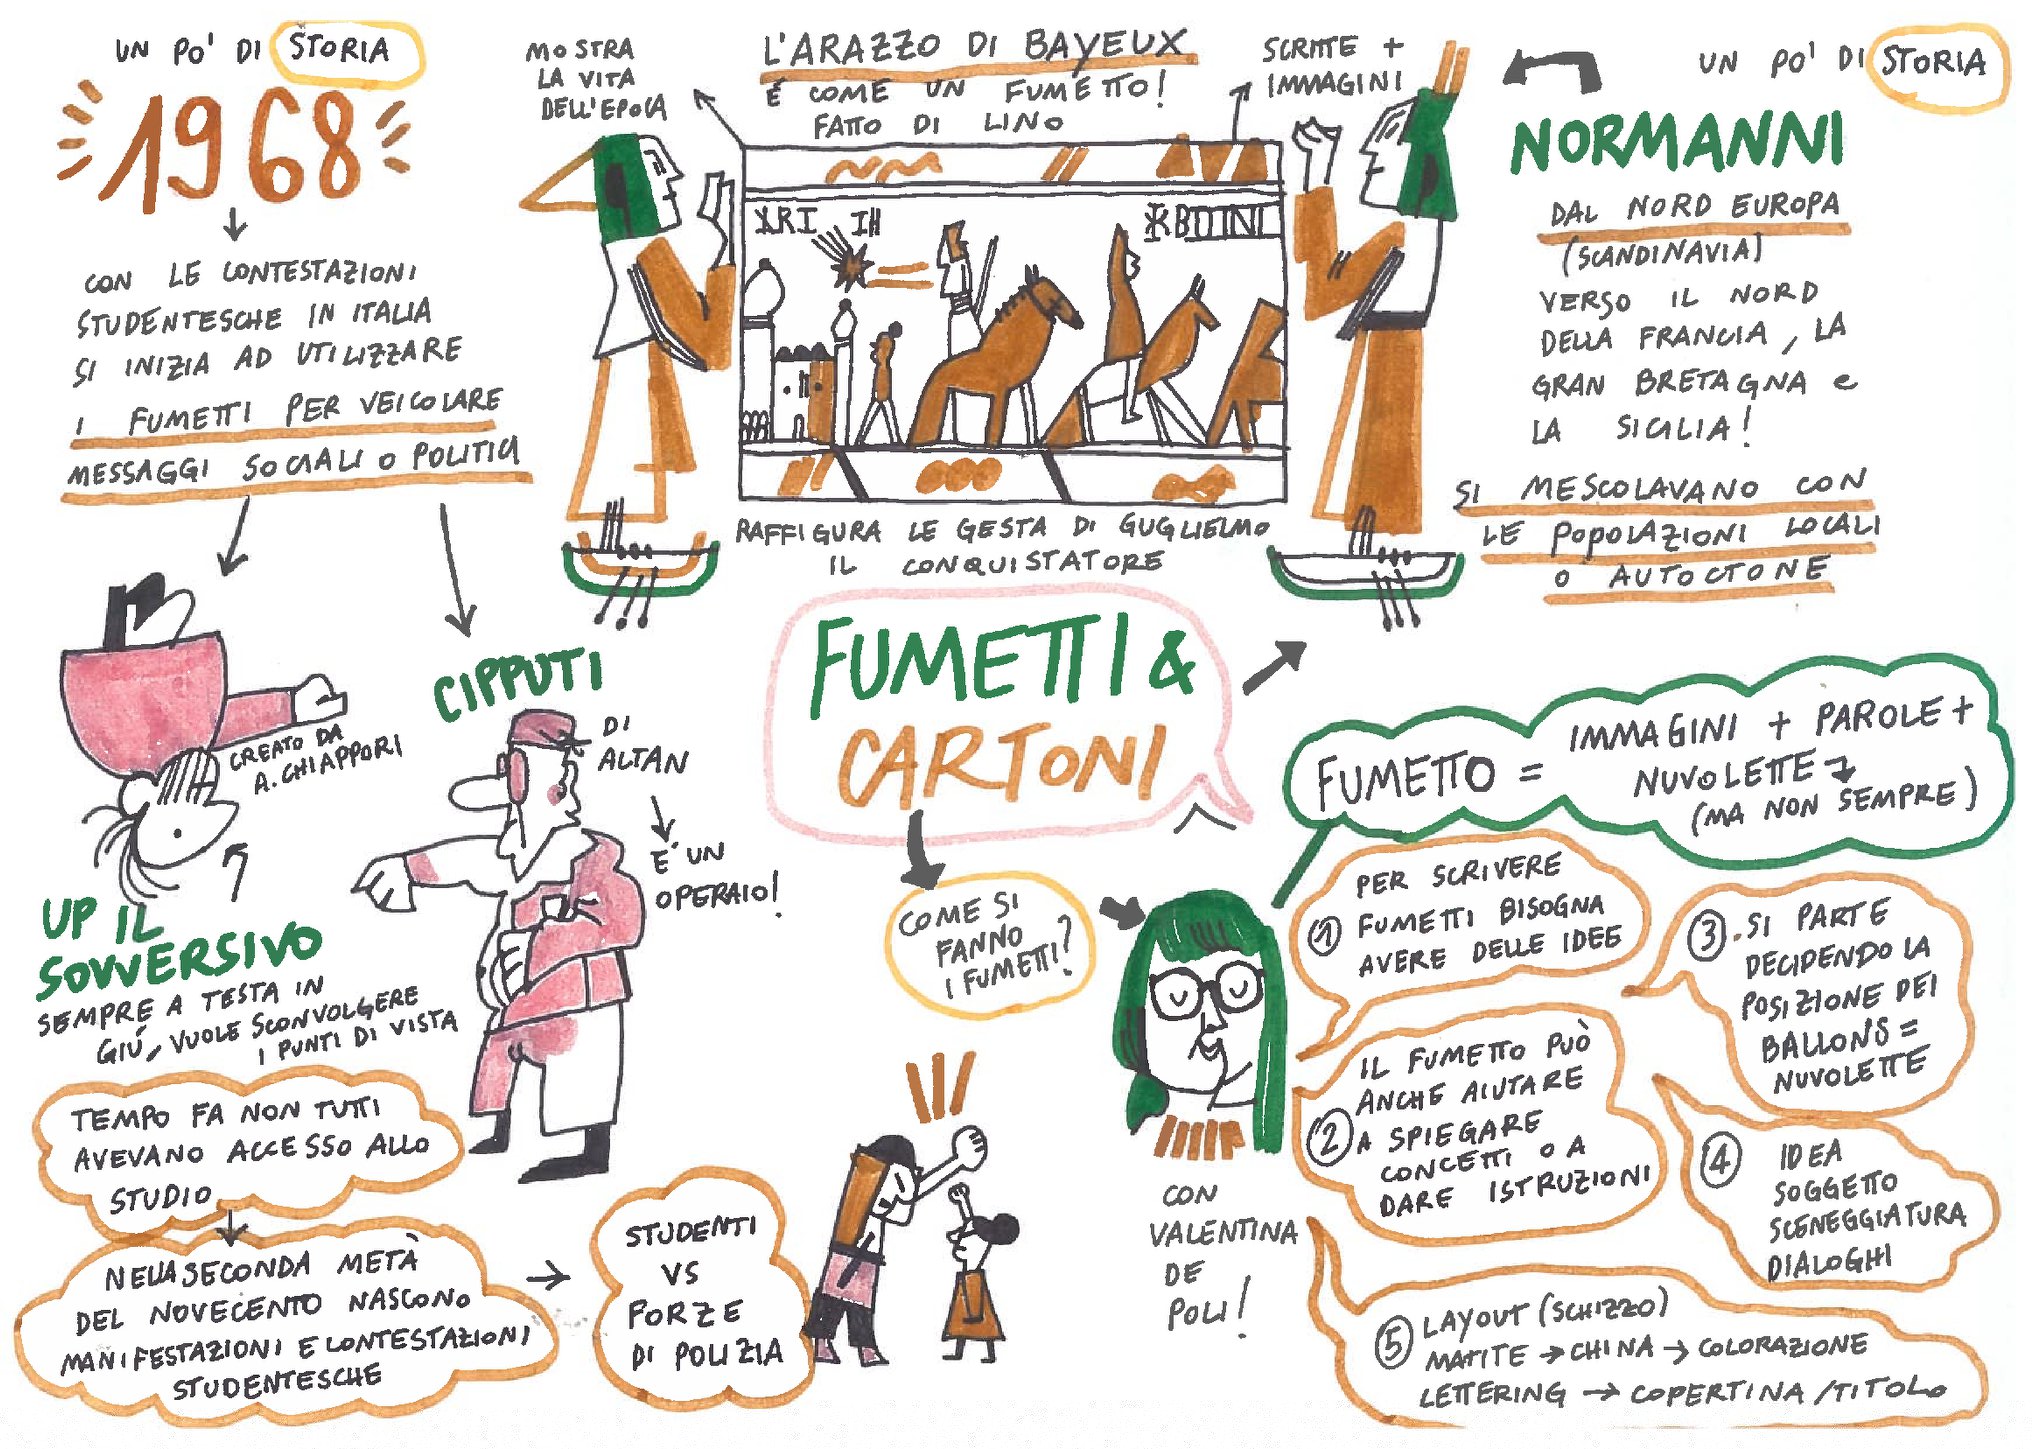 UN PO' DI STORIA
1968
CON LE CONTESTAZIONI
STUDENTESCHE IN ITALIA
SI INIZIA AD UTILIZZARE
I FUMETTI PER VEICOLARE
MESSAGGI SOCIALI O POLITICI
CREATO DA
A. CHIAPPORI
UP IL
SOVVERSIVO
SEMPRE A TESTA IN
GIÚ, VUOLE SCONVOLGERE
I PUNTI DI VISTA
CIPPUTI
DI
ALTAN
E' UN
OPERAIO!
TEMPO FA NON TUTTI
AVEVANO ACCESSO ALLO
STUDIO
NELLA SECONDA METÀ
DEL NOVECENTO NASCONO
MANIFESTAZIONI E CONTESTAZIONI
STUDENTESCHE
STUDENTI
VS
FORZE
DI POLIZIA
MOSTRA
LA VITA
DELL'EPOCA
L'ARAZZO DI BAYEUX
È COME UN FUMETTO!
FATTO DI LINO
SCRITTE +
IMMAGINI
RAFFIGURA LE GESTA DI GUGLIELMO
IL CONQUISTATORE
UN PO' DI STORIA
NORMANNI
DAL NORD EUROPA
(SCANDINAVIA)
VERSO IL NORD
DELLA FRANCIA, LA
GRAN BRETAGNA e
LA SICILIA!
SI MESCOLAVANO CON
LE POPOLAZIONI LOCALI
O AUTOCTONE
FUMETTI &
CARTONI
COME SI
FANNO
I FUMETTI?
CON
VALENTINA
DE
POLI!
FUMETTO = IMMAGINI + PAROLE +
NUVOLETTE
(MA NON SEMPRE)
PER SCRIVERE
1 FUMETTI BISOGNA
AVERE DELLE IDEE
IL FUMETTO PUÒ
ANCHE AIUTARE
2 A SPIEGARE
CONCETTI O A
DARE ISTRUZIONI
3. SI PARTE
DECIDENDO LA
POSIZIONE DEI
BALLONS =
NUVOLETTE
4 IDEA
SOGGETTO
SCENEGGIATURA
DIALOGHI
5 LAYOUT (SCHIZZO)
MATITE → CHINA → COLORAZIONE
LETTERING → COPERTINA / TITOLO